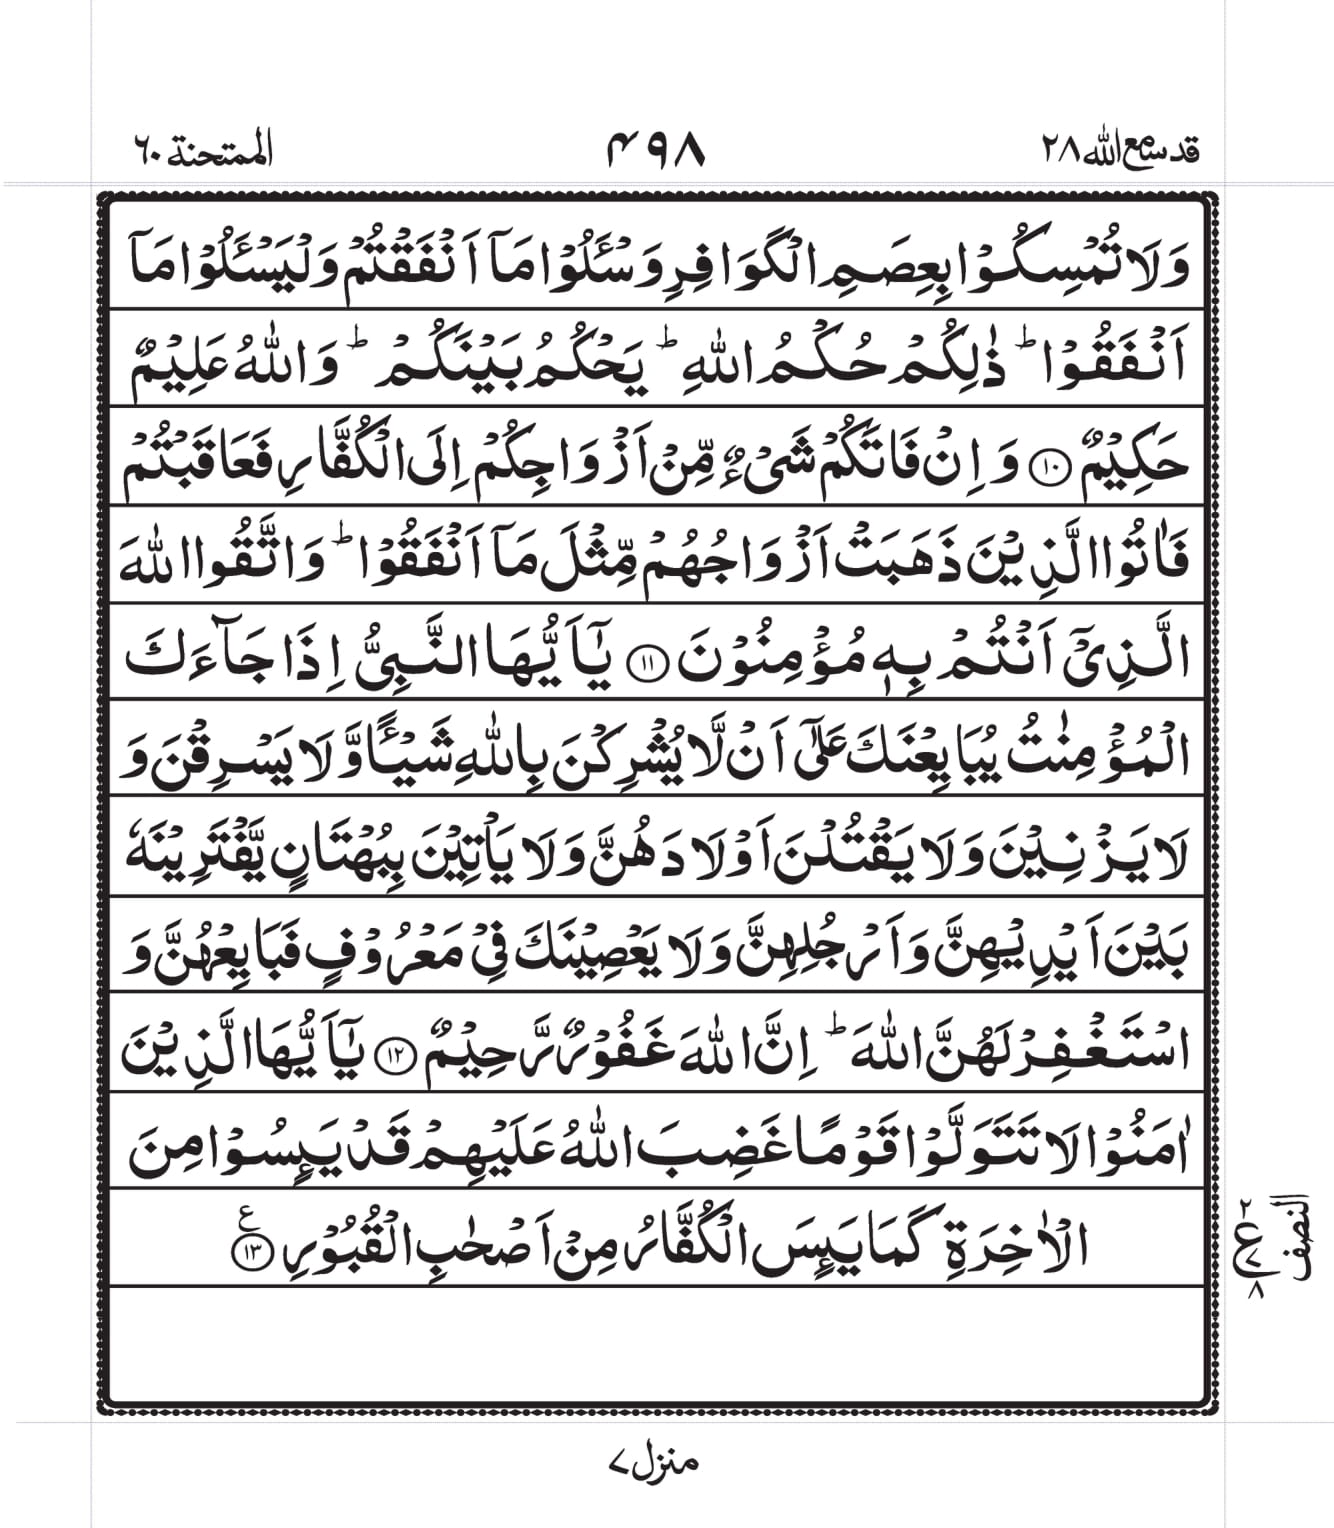 قد سمع الله ٢٨
۴٩٨
الممتحنة ٦٠
وَلَا تُمْسِكُوْا بِعِصَمِ الْكَوَافِرِ وَسْـَٔلُوْا مَاۤ اَنْفَقْتُمْ وَلْيَسْـَٔلُوْا مَاۤ
اَنْفَقُوْا ؕ ذٰلِكُمْ حُكْمُ اللّٰهِ ؕ يَحْكُمُ بَيْنَكُمْ ؕ وَاللّٰهُ عَلِيْمٌ
حَكِيْمٌ ١٠ وَاِنْ فَاتَكُمْ شَىْءٌ مِّنْ اَزْوَاجِكُمْ اِلَى الْكُفَّارِ فَعَاقَبْتُمْ
فَاٰتُوا الَّذِيْنَ ذَهَبَتْ اَزْوَاجُهُمْ مِّثْلَ مَاۤ اَنْفَقُوْا ؕ وَاتَّقُوا اللّٰهَ
الَّذِىْۤ اَنْتُمْ بِهٖ مُؤْمِنُوْنَ ١١ يٰۤاَيُّهَا النَّبِىُّ اِذَا جَآءَكَ
الْمُؤْمِنٰتُ يُبَايِعْنَكَ عَلٰٓى اَنْ لَّا يُشْرِكْنَ بِاللّٰهِ شَيْـًٔا وَّلَا يَسْرِقْنَ وَ
لَا يَزْنِيْنَ وَلَا يَقْتُلْنَ اَوْلَادَهُنَّ وَلَا يَاْتِيْنَ بِبُهْتَانٍ يَّفْتَرِيْنَهٗ
بَيْنَ اَيْدِيْهِنَّ وَاَرْجُلِهِنَّ وَلَا يَعْصِيْنَكَ فِىْ مَعْرُوْفٍ فَبَايِعْهُنَّ وَ
اسْتَغْفِرْ لَهُنَّ اللّٰهَ ؕ اِنَّ اللّٰهَ غَفُوْرٌ رَّحِيْمٌ ١٢ يٰۤاَيُّهَا الَّذِيْنَ
اٰمَنُوْا لَا تَتَوَلَّوْا قَوْمًا غَضِبَ اللّٰهُ عَلَيْهِمْ قَدْ يَئِسُوْا مِنَ
الْاٰخِرَةِ كَمَا يَئِسَ الْكُفَّارُ مِنْ اَصْحٰبِ الْقُبُوْرِ ١٣ ع
النصف
٢
ع ٧
٨
منزل ٧